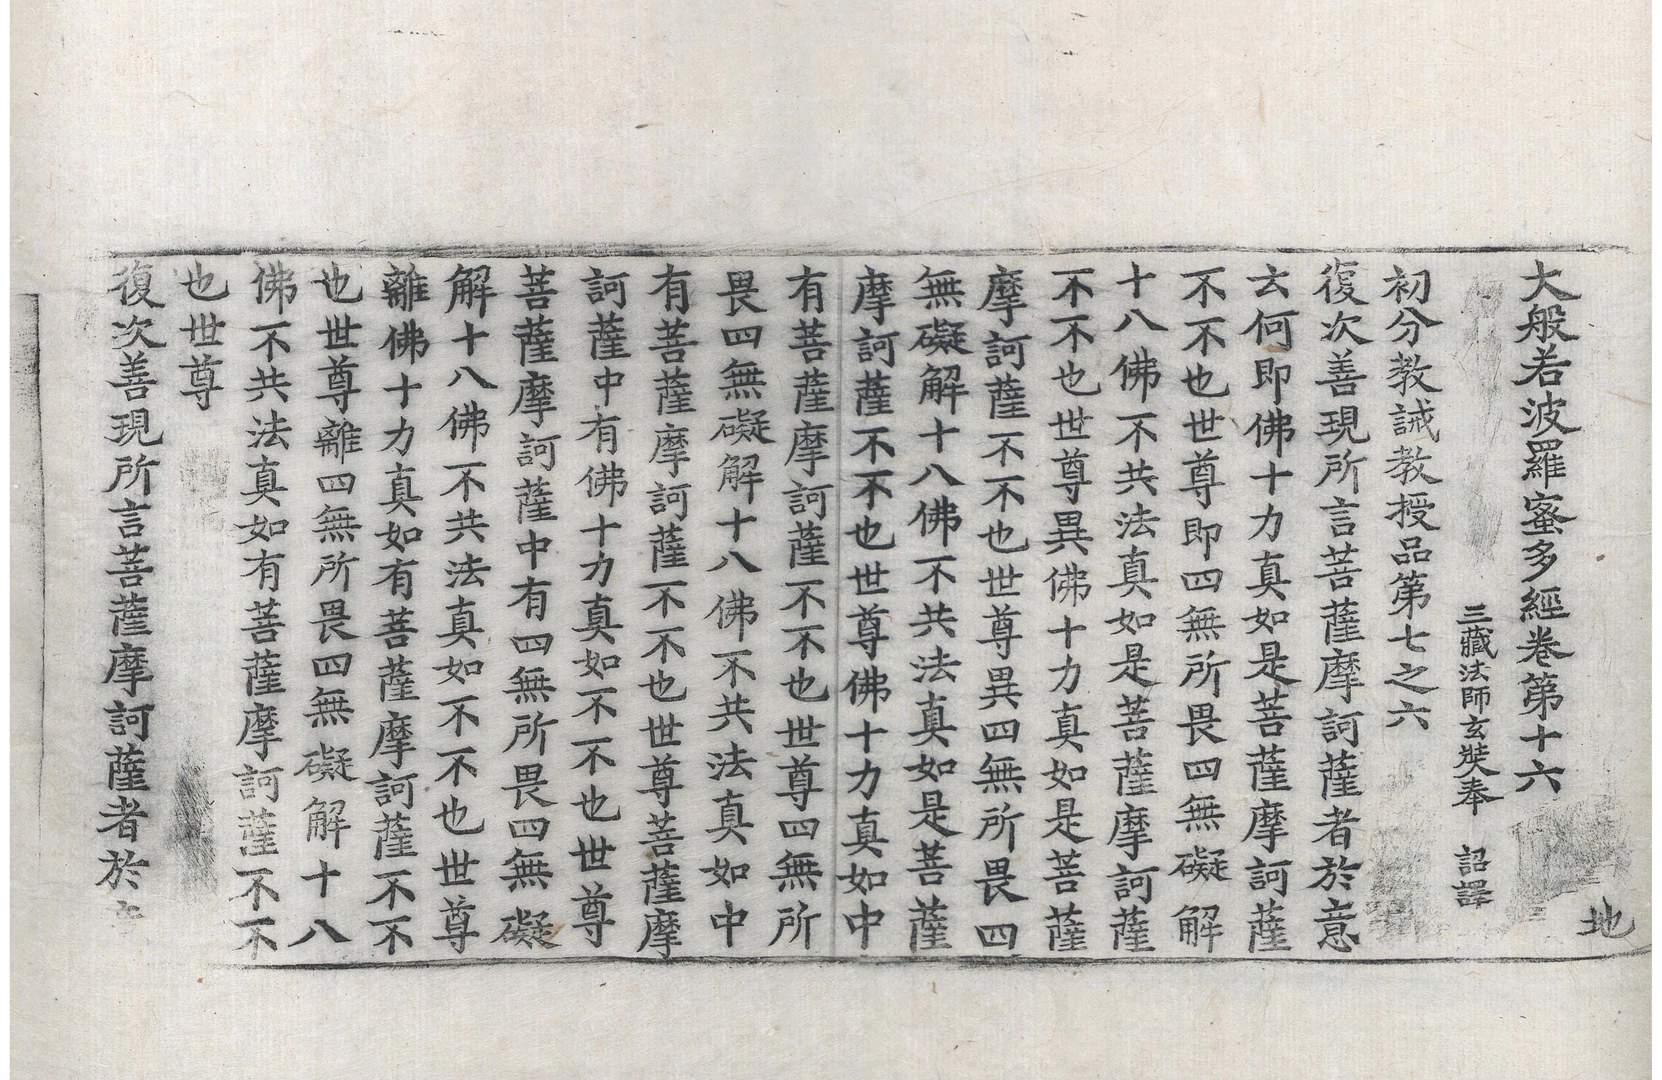 大般若波羅蜜多經卷第十六
地
三藏法師玄奘奉 詔譯
初分教誡教授品第七之六
復次善現所言菩薩摩訶薩者於意
云何即佛十力真如是菩薩摩訶薩
不不也世尊即四無所畏四無礙解
十八佛不共法真如是菩薩摩訶薩
不不也世尊異佛十力真如是菩薩
摩訶薩不不也世尊異四無所畏四
無礙解十八佛不共法真如是菩薩
摩訶薩不不也世尊佛十力真如中
有菩薩摩訶薩不不也世尊四無所
畏四無礙解十八佛不共法真如中
有菩薩摩訶薩不不也世尊菩薩摩
訶薩中有佛十力真如不不也世尊
菩薩摩訶薩中有四無所畏四無礙
解十八佛不共法真如不不也世尊
離佛十力真如有菩薩摩訶薩不不
也世尊離四無所畏四無礙解十八
佛不共法真如有菩薩摩訶薩不不
也世尊
復次善現所言菩薩摩訶薩者於